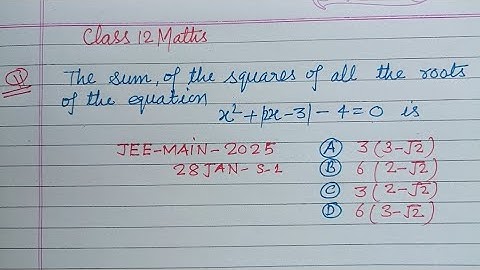 Class 12 Maths
Q The sum, of the squares of all the roots
of the equation
x² + |2x - 3| - 4 = 0 is
JEE-MAIN-2025
28 JAN - S-1
Ⓐ 3(3-√2)
Ⓑ 6(2-√2)
Ⓒ 3(2-√2)
Ⓓ 6(3-√2)